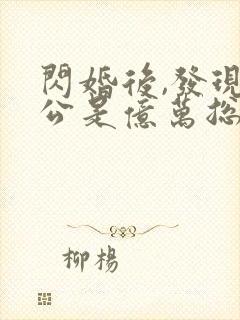 閃婚後,發現
公是億萬總
柳楊